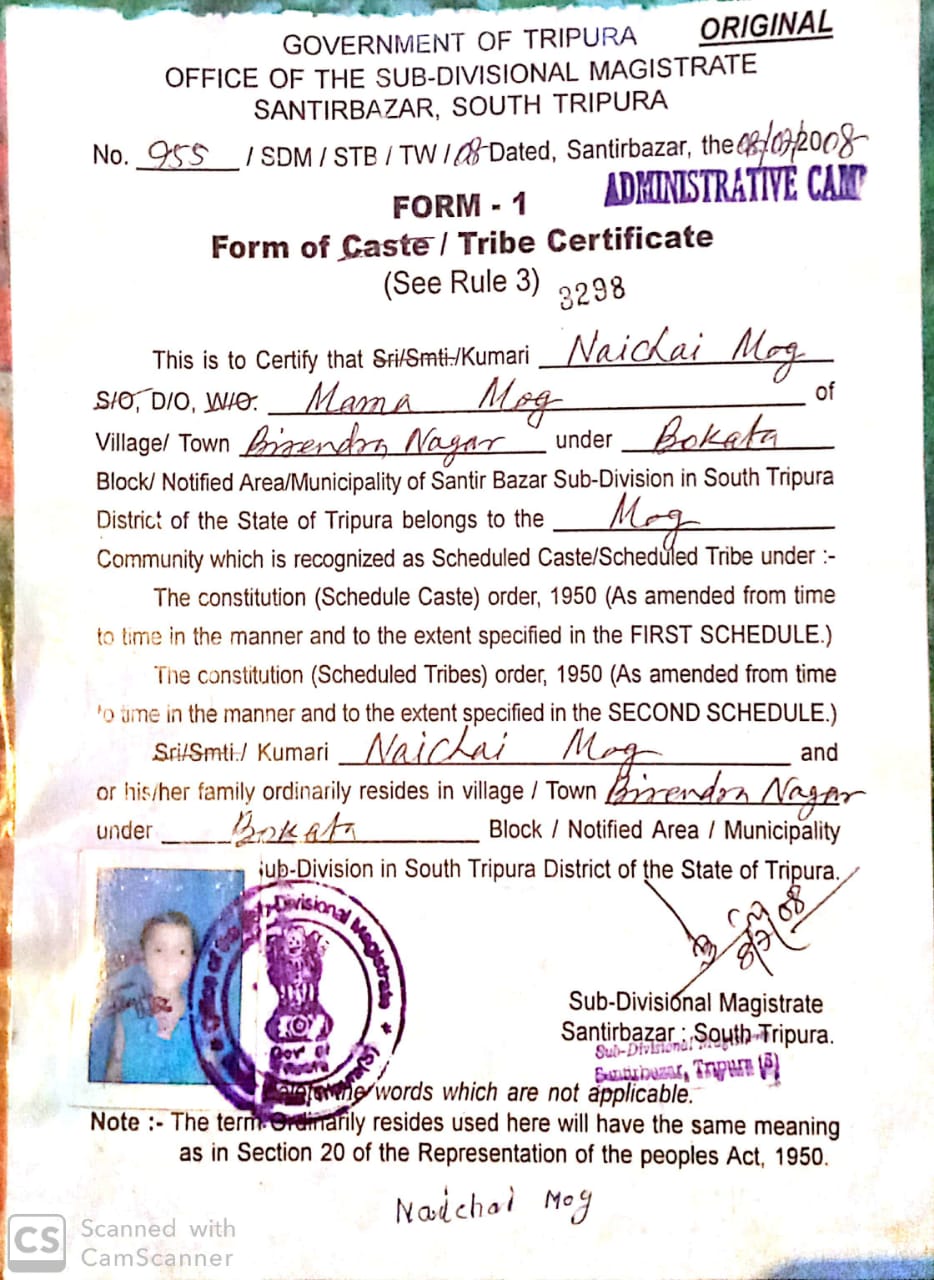 ORIGINAL
GOVERNMENT OF TRIPURA
OFFICE OF THE SUB-DIVISIONAL MAGISTRATE
SANTIRBAZAR, SOUTH TRIPURA
No. 955 / SDM / STB / TW / 08 Dated, Santirbazar, the 08/07/2008
ADMINISTRATIVE CAMP
FORM - 1
Form of Caste / Tribe Certificate
(See Rule 3) 3298
This is to Certify that Sri/Smti./Kumari Naichai Mog
S/O, D/O, W/O. Mama Mog of
Village/ Town Birendra Nagar under Bokata
Block/ Notified Area/Municipality of Santir Bazar Sub-Division in South Tripura
District of the State of Tripura belongs to the Mog
Community which is recognized as Scheduled Caste/Scheduled Tribe under :-
The constitution (Schedule Caste) order, 1950 (As amended from time
to time in the manner and to the extent specified in the FIRST SCHEDULE.)
The constitution (Scheduled Tribes) order, 1950 (As amended from time
to time in the manner and to the extent specified in the SECOND SCHEDULE.)
Sri/Smti./ Kumari Naichai Mog and
or his/her family ordinarily resides in village / Town Birendra Nagar
under Bokata Block / Notified Area / Municipality
Sub-Division in South Tripura District of the State of Tripura.
8/7/08
Sub-Divisional Magistrate
Santirbazar : South Tripura.
Sub-Divisional
Santirbazar, Tripura (S)
Sub-Divisional Magistrate
Gov of
the words which are not applicable.
Note :- The term Ordinarily resides used here will have the same meaning
as in Section 20 of the Representation of the peoples Act, 1950.
Naichai Mog
CS Scanned with
CamScanner